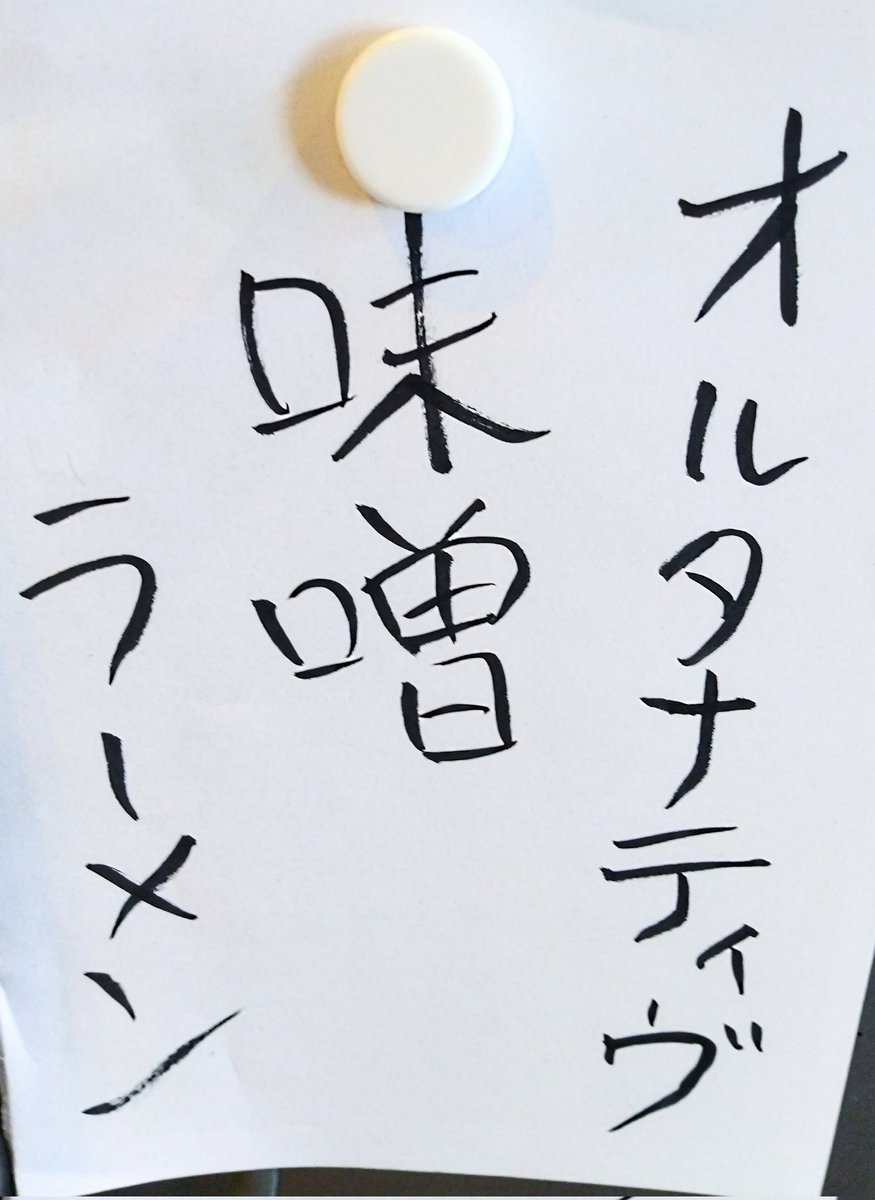 オルタナティヴ
味噌
ラーメン